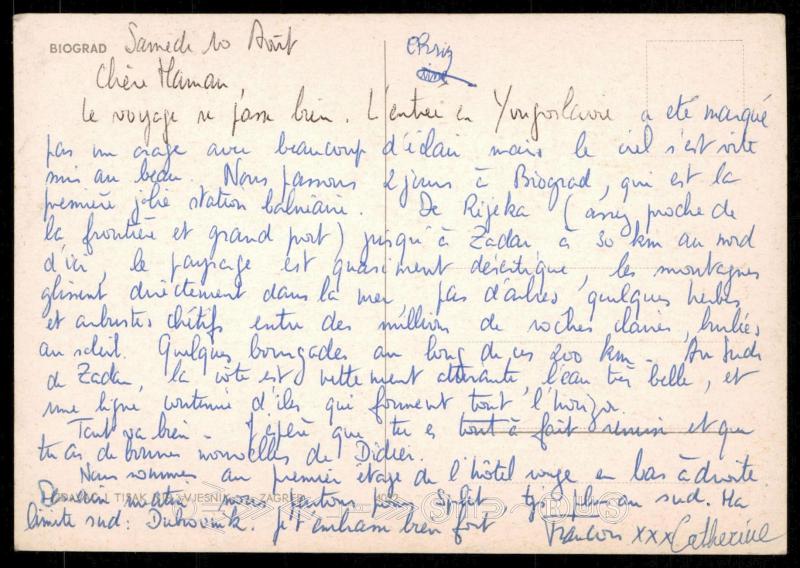 BIOGRAD Samedi 10 Août
Chère Maman,
Le voyage se passe bien. L'entrée en Yougoslavie a été marqué
pas un orage avec beaucoup d'éclair mais le ciel s'est vite
mis au beau. Nous passons 2 jours à Biograd, qui est la
première jolie station balnéaire. De Rijeka (assez proche de
la frontière et grand port) jusqu'à Zadar à 30 km au nord
d'ici, le paysage est quasiment désertique, les montagnes
glissent directement dans la mer, pas d'arbres, quelques herbes
et arbustes chétifs entre des millions de roches claires, brulées
au soleil. Quelques bourgades au long de ces 200 km. Au sud
de Zadar, la côte est nettement attirante, l'eau très belle, et
une ligne continue d'iles qui forment tout l'horizon.
Tout va bien - J'espère que tu es tout à fait remise et que
tu as de bonnes nouvelles de Didier.
Nous sommes au premier étage de l'hôtel rouge en bas à droite.
Demain matin nous partons pour Split tjs plus au sud. Ma
IZDAVAČ I TISAK "VJESNIK" ZAGREB
limite sud: Dubrovnik. Je t'embrasse bien fort
François xxx Catherine